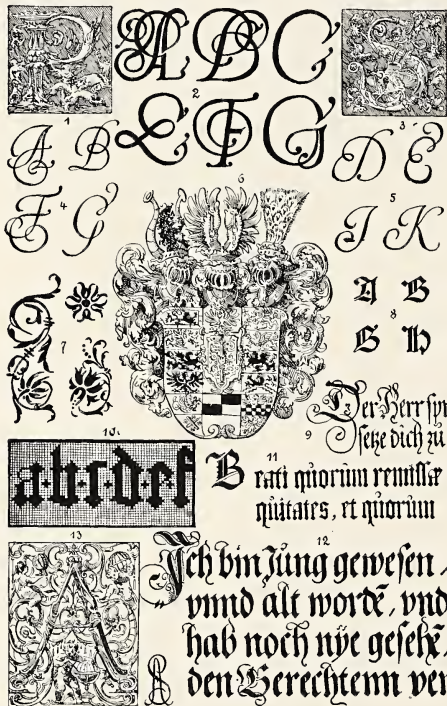 P
A B C
S
2
E F G
1
A B
3
D E
6
4
F G
5
J K
A B
8
G H
7
Der Herr spr
9
setze dich zu
10.
a·b·c·d·e·f
11
Beati quorum remissæ
quitates, et quorum
13
12
Ich bin Jung gewesen,
vnnd alt wordẽ, vnd
hab noch nÿe gesehẽ,
A
den Gerechtenn ver
A